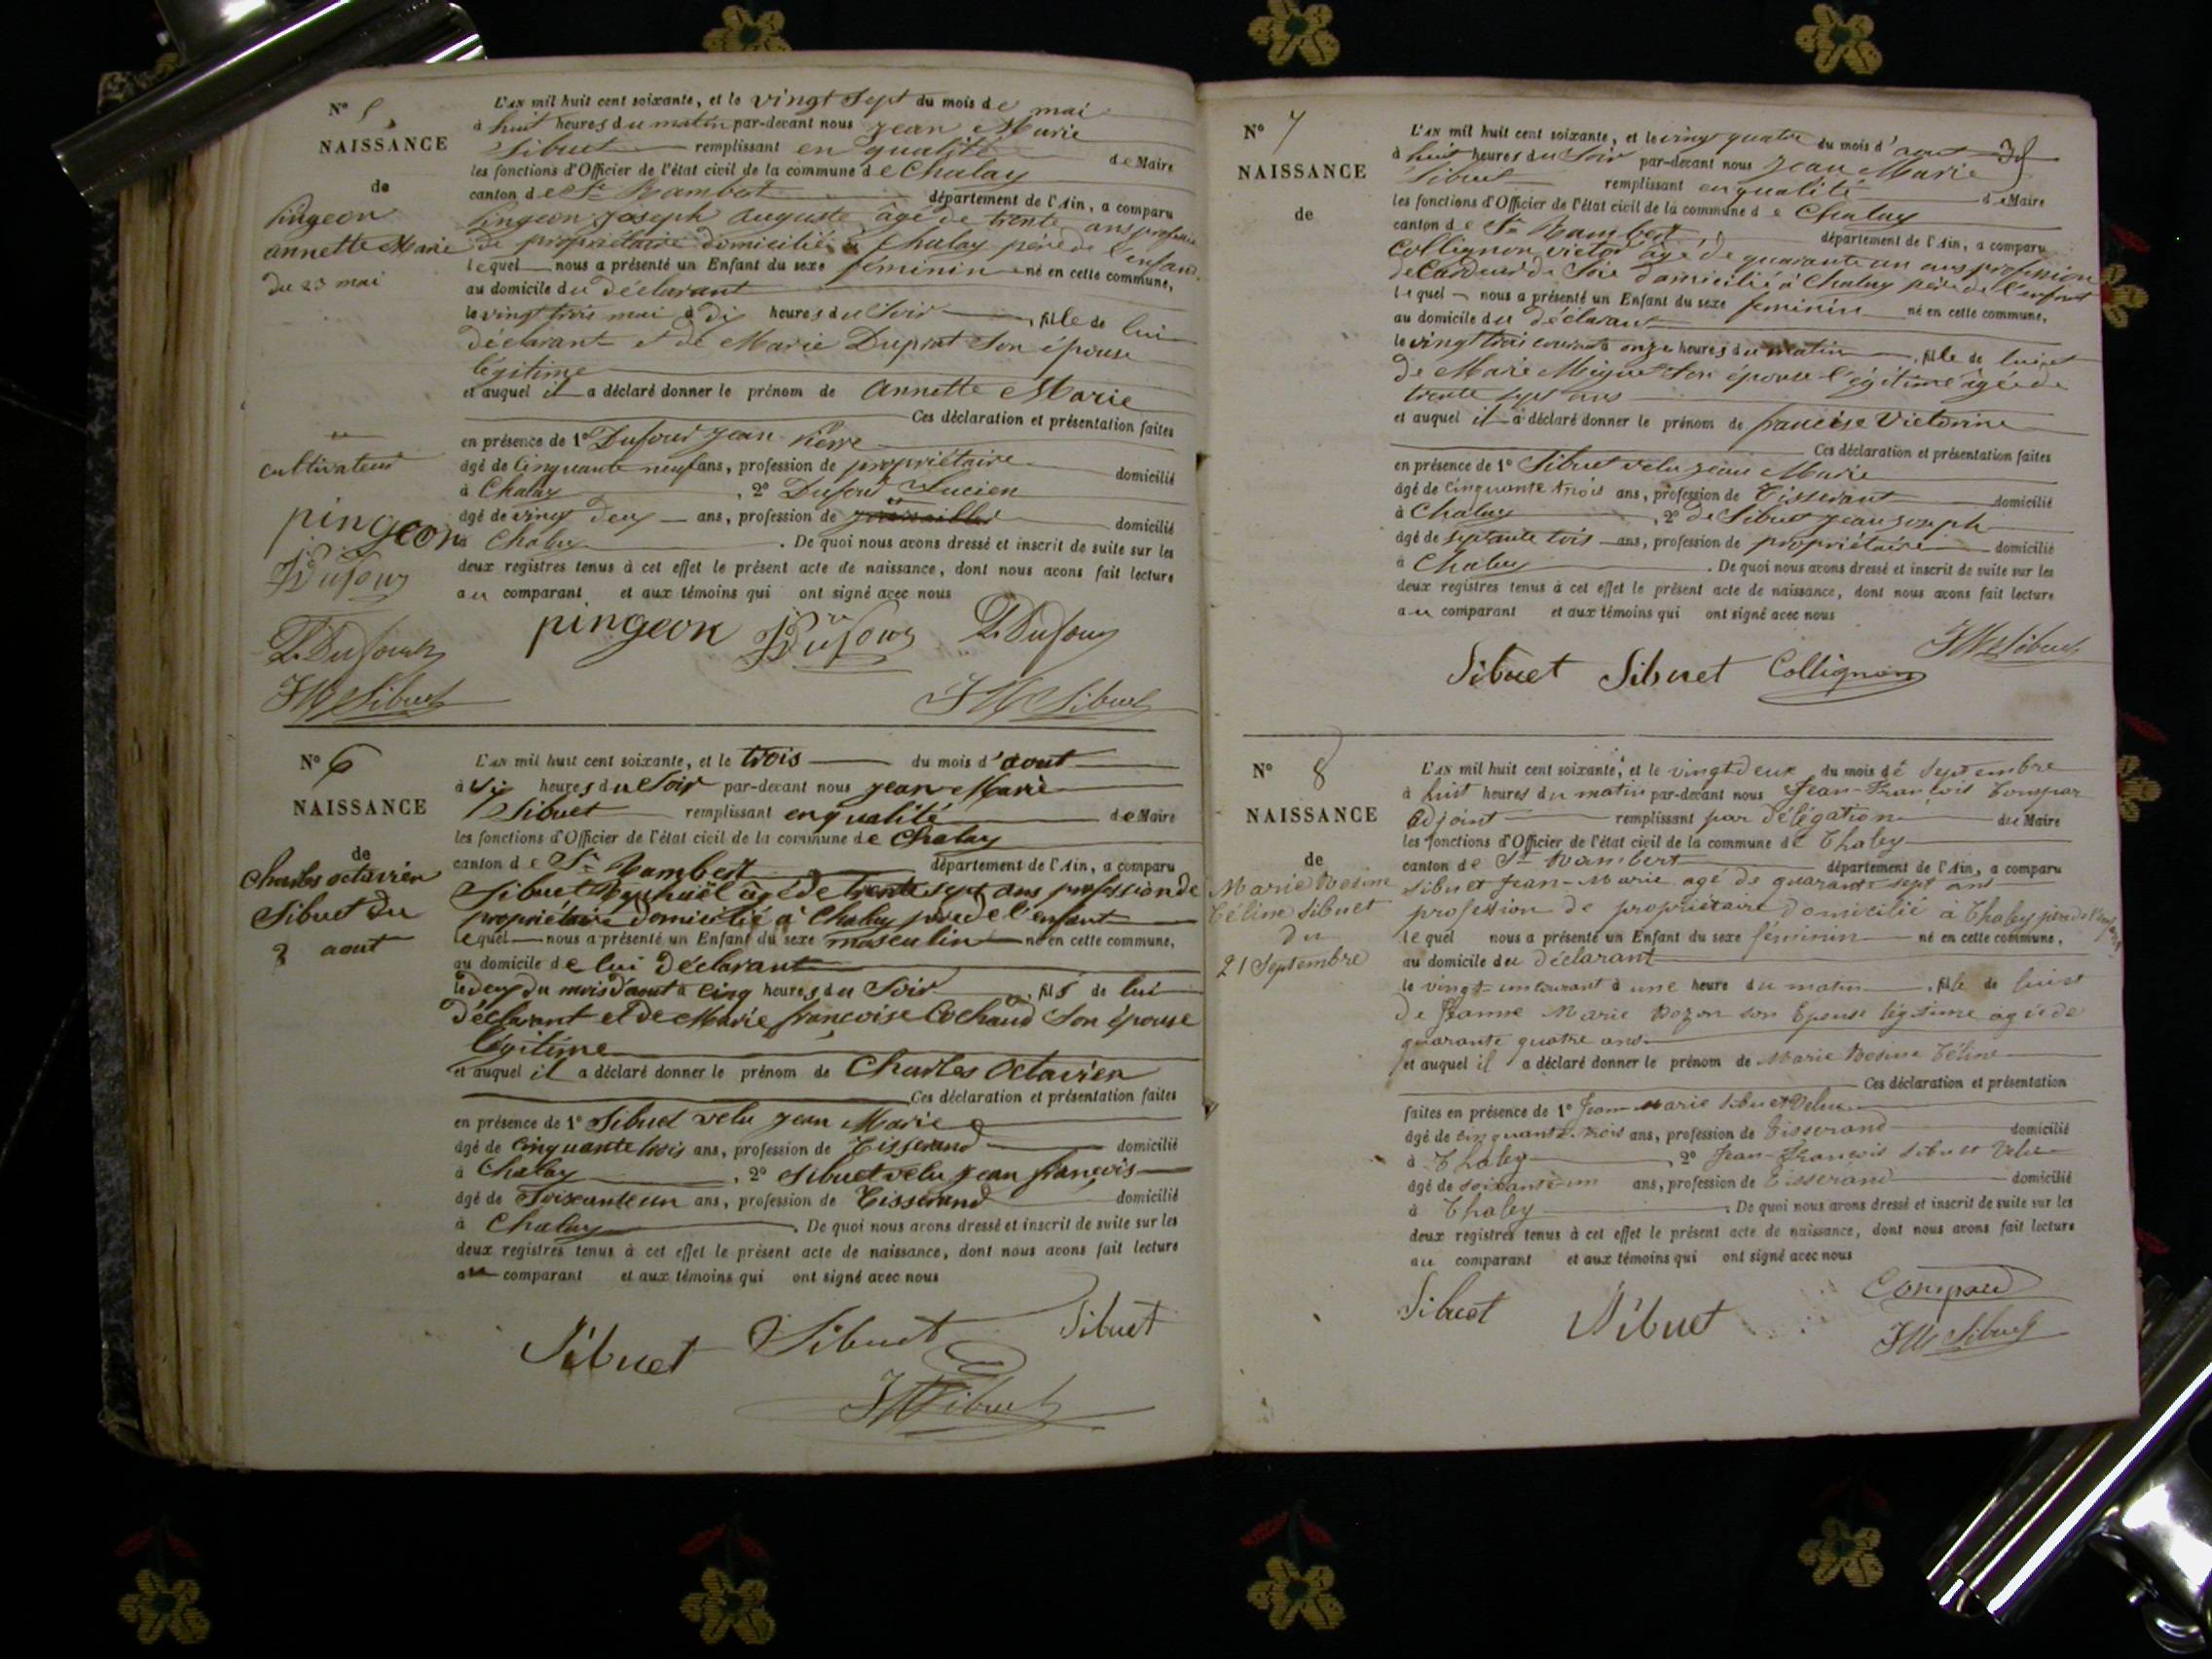 N° 5
NAISSANCE
de
pingeon
annette Marie
du 23 mai
cultivateur
pingeon
JP Dufour
L. Dufour
JM Sibuet
L'AN mil huit cent soixante, et le vingt sept du mois de mai
à huit heures du matin par-devant nous jean Marie
Sibuet remplissant en qualité de Maire
les fonctions d'Officier de l'état civil de la commune de Chaley
canton de St Rambert département de l'Ain, a comparu
pingeon joseph auguste âgé de trente ans profession
de propriétaire domicilié à Chaley père de l'enfant
lequel nous a présenté un Enfant du sexe féminin né en cette commune,
au domicile du déclarant
le vingt trois mai à dix heures du Soir, fille de lui
déclarant et de Marie Duprat Son épouse
légitime
et auquel il a déclaré donner le prénom de annette Marie
Ces déclaration et présentation faites
en présence de 1° Dufour jean pierre
âgé de Cinquante neuf ans, profession de propriétaire domicilié
à Chaley, 2° Dufour Lucien
âgé de vingt deux ans, profession de domicilié
à Chaley. De quoi nous avons dressé et inscrit de suite sur les
deux registres tenus à cet effet le présent acte de naissance, dont nous avons fait lecture
au comparant et aux témoins qui ont signé avec nous
pingeon JP Dufour L. Dufour
JM Sibuet
N° 6
NAISSANCE
de
Charles octavien
Sibuet du
2 aout
L'AN mil huit cent soixante, et le trois du mois d'aout
à Six heures du Soir par-devant nous jean Marie
Sibuet remplissant en qualité de Maire
les fonctions d'Officier de l'état civil de la commune de Chaley
canton de St Rambert département de l'Ain, a comparu
Sibuet âgé de trente sept ans profession de
propriétaire domicilié à Chaley père de l'enfant
lequel nous a présenté un Enfant du sexe masculin né en cette commune,
au domicile de lui déclarant
le deux du mois d'aout à Cinq heures du Soir, fils de lui
déclarant et de Marie françoise Cochaud Son épouse
légitime
et auquel il a déclaré donner le prénom de Charles Octavien
Ces déclaration et présentation faites
en présence de 1° Sibuet velu jean Marie
âgé de Cinquante trois ans, profession de Tisserand domicilié
à Chaley, 2° Sibuet velu jean françois
âgé de Soixante un ans, profession de Tisserand domicilié
à Chaley. De quoi nous avons dressé et inscrit de suite sur les
deux registres tenus à cet effet le présent acte de naissance, dont nous avons fait lecture
au comparant et aux témoins qui ont signé avec nous
Sibuet Sibuet Sibuet
JM Sibuet
N° 7
NAISSANCE
de
L'AN mil huit cent soixante, et le vingt quatre du mois d'aout
à huit heures du Soir par-devant nous jean Marie
Sibuet remplissant en qualité de Maire
les fonctions d'Officier de l'état civil de la commune de Chaley
canton de St Rambert département de l'Ain, a comparu
Collignon victor âgé de quarante un ans profession
de Cardeur de Soie domicilié à Chaley père de l'enfant
lequel nous a présenté un Enfant du sexe feminin né en cette commune,
au domicile du déclarant
le vingt trois courant à onze heures du matin, fille de lui et
de Marie Miguet Son épouse légitime âgée de
trente sept ans
et auquel il a déclaré donner le prénom de francise Victorine
Ces déclaration et présentation faites
en présence de 1° Sibuet velu jean Marie
âgé de Cinquante trois ans, profession de Tisserant domicilié
à Chaley, 2° de Sibuet jean joseph
âgé de septante tois ans, profession de propriétaire domicilié
à Chaley. De quoi nous avons dressé et inscrit de suite sur les
deux registres tenus à cet effet le présent acte de naissance, dont nous avons fait lecture
au comparant et aux témoins qui ont signé avec nous
JM Sibuet
Sibuet Sibuet Collignon
N° 8
NAISSANCE
de
Marie Rosine
Céline Sibuet
du
21 Septembre
L'AN mil huit cent soixante, et le vingt deux du mois de Septembre
à huit heures du matin par-devant nous Jean-François Compar
adjoint remplissant par délégation du Maire
les fonctions d'Officier de l'état civil de la commune de Chaley
canton de St Rambert département de l'Ain, a comparu
Sibuet Jean-Marie agé de quarante sept ans
profession de propriétaire domicilié à Chaley père de l'enfant
lequel nous a présenté un Enfant du sexe féminin né en cette commune,
au domicile du déclarant
le vingt-un courant à une heure du matin, fille de lui et
de Jeanne Marie Bozon son Epouse légitime agée de
quarante quatre ans
et auquel il a déclaré donner le prénom de Marie Rosine Céline
Ces déclaration et présentation
faites en présence de 1° Jean-Marie Sibuet Velu
âgé de cinquante-trois ans, profession de Tisserand domicilié
à Chaley, 2° Jean-François Sibuet Velu
âgé de soixante-un ans, profession de Tisserand domicilié
à Chaley. De quoi nous avons dressé et inscrit de suite sur les
deux registres tenus à cet effet le présent acte de naissance, dont nous avons fait lecture
au comparant et aux témoins qui ont signé avec nous
Sibuet Sibuet Compard
JM Sibuet